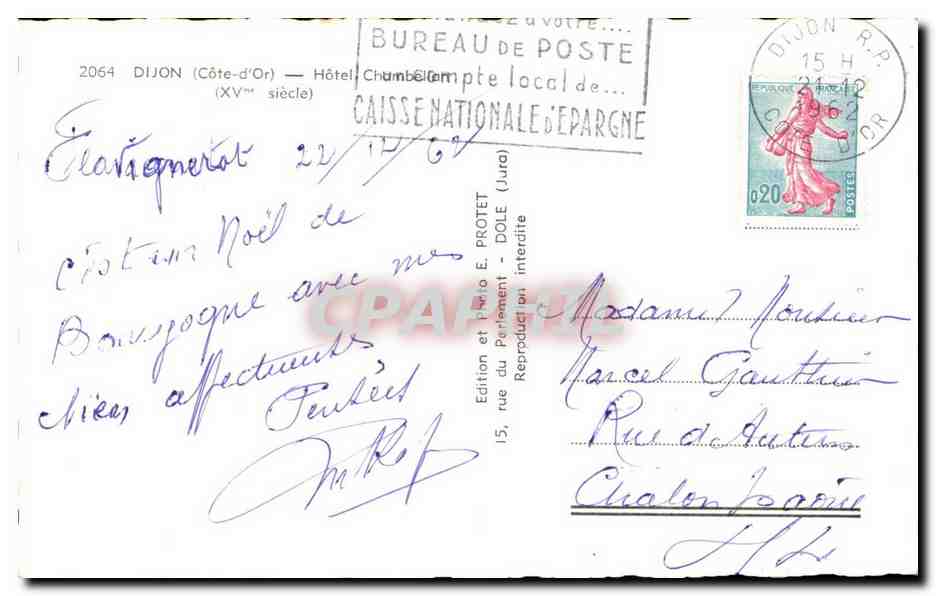 2064 DIJON (Côte-d'Or) — Hôtel Chambellan
(XVme siècle)
à votre....
BUREAU DE POSTE
un compte local de...
CAISSE NATIONALE D'EPARGNE
DIJON R.P.
15 H
21-12
1962
COTE D'OR
REPUBLIQUE FRANÇAISE
0,20
POSTES
Flavignerot 22/12/62
C'est un Noël de
Bourgogne avec mes
affectueuses
Pensées
Edition et Photo E. PROTET
15, rue du Parlement - DOLE (Jura)
Reproduction interdite
CPAPHIL
Madame Monsieur
Marcel Gauthier
Rue d'Autun
Chalon s Saône
S/L